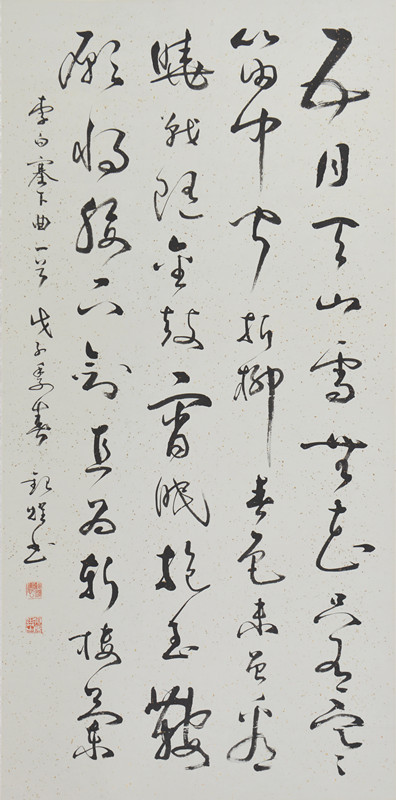 五月天山雪無花只有寒
笛中聞折柳春色未曾看
曉戰隨金鼓宵眠抱玉鞍
願將腰下劍直為斬樓蘭
李白塞下曲一首 戊子季春 書